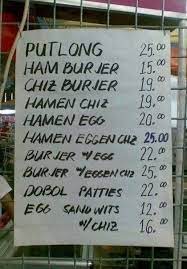 PUTLONG 25.00
HAM BURJER 15.00
CHIZ BURJER 19.00
HAMEN CHIZ 19.00
HAMEN EGG 20.00
HAMEN EGGEN CHIZ 25.00
BURJER W/EGG 22.00
BURJER W/EGGEN CHIZ 25.00
DOBOL PATTIES 22.00
EGG SANDWITS 12.00
W/ CHIZ 16.00